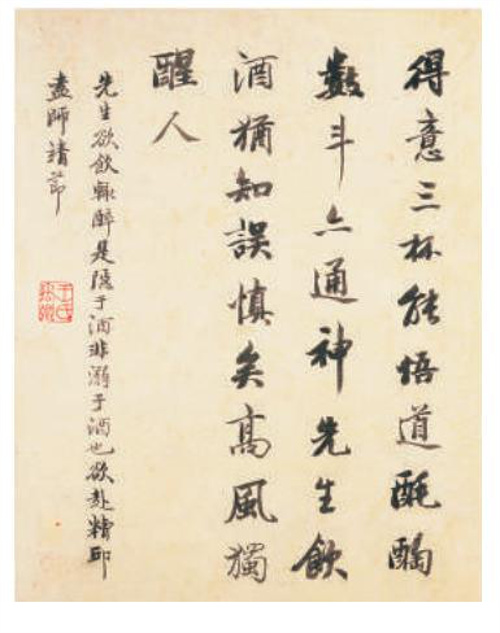 得意三杯能悟道酕醄
數斗亦通神先生飲
酒猶知誤慎矣高風獨
醒人
先生欲飲輒醉是隱于酒非溺于酒也欲糟邱
盡師靖節